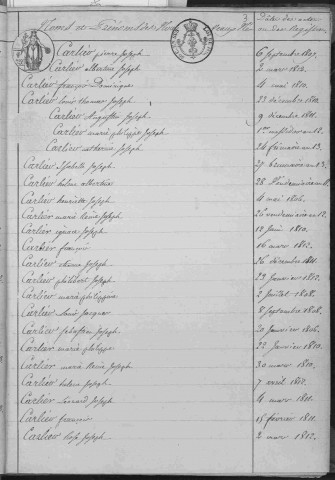 Noms et Prénoms des
3
Date des actes
ou des Registres
Carlier Joseph 6 septembre 1807.
Carlier albertine Joseph 2 mars 1812.
Carlier françois Dominique 4 mai 1810.
Carlier Louis Joseph 23 décembre 1810.
Carlier Augustin Joseph 9 décembre 1810.
Carlier marie philippe Joseph 1er messidor an 12.
Carlier catherine Joseph 26 frimaire an 13.
Carlier Isabelle Joseph 27 brumaire an 13.
Carlier helene albertine 28 Vendemiaire an
Carlier henriette Joseph 4 mai 1806.
Carlier marie Rosie Joseph 26 vendemiaire an 12.
Carlier ignace Joseph 12 Juin 1810.
Carlier françois 16 mars 1812.
Carlier Joseph 26 décembre 1811.
Carlier philibert Joseph 23 Janvier 1812.
Carlier marie philippine 2 Juillet 1808.
Carlier Louis Jacques 8 septembre 1808.
Carlier sebastien Joseph 20 Janvier 1806.
Carlier marie philippe 22 Janvier 1810.
Carlier marie Rosie Joseph 30 mars 1810.
Carlier helene Joseph 7 avril 1812.
Carlier Leonard Joseph 4 mars 1811.
Carlier françois 15 février 1811.
Carlier Rose Joseph 2 mars 1812.